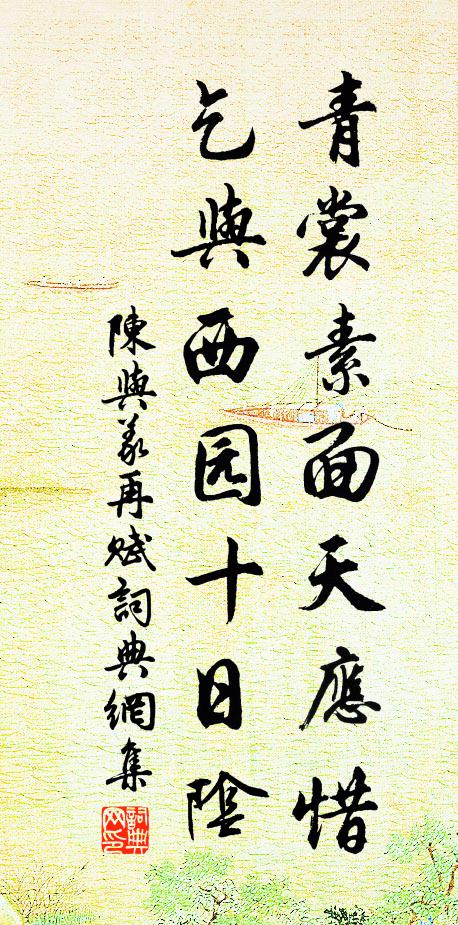 青裳素面天應惜
乞與西园十日陰
陳與義再赋詞典網集
詞典网印